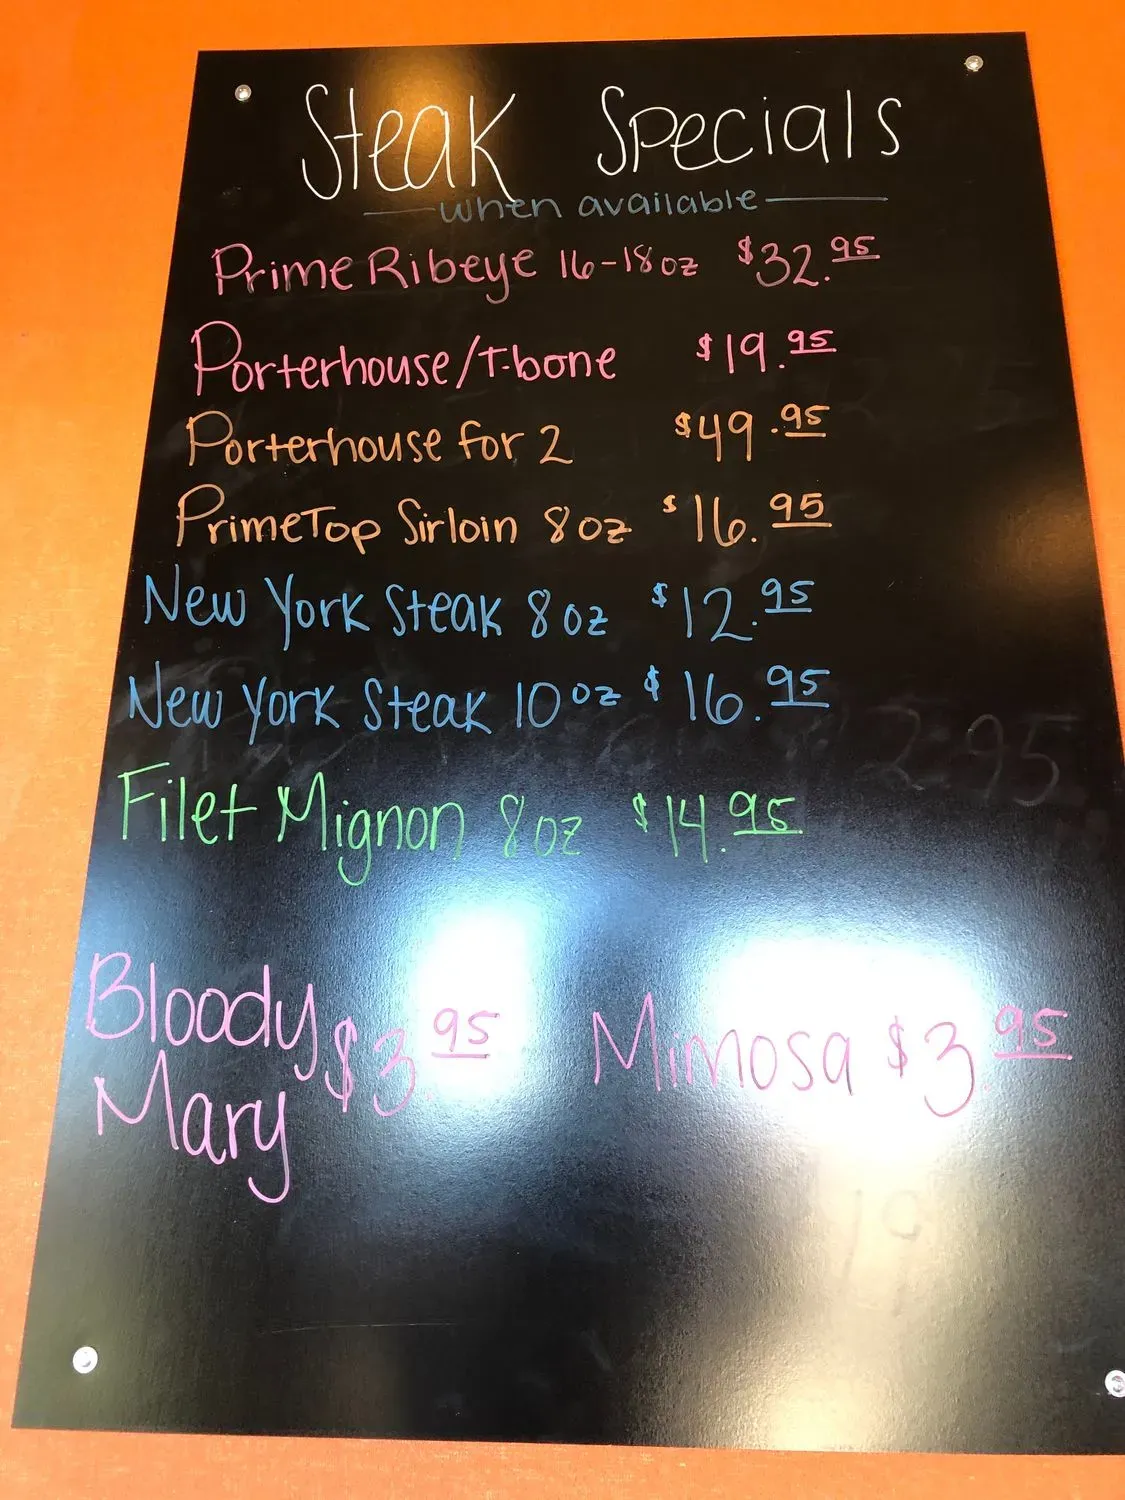 Steak Specials
when available
Prime Ribeye 16-18oz $32.95
Porterhouse/T-bone $19.95
Porterhouse for 2 $49.95
Prime Top Sirloin 8oz $16.95
New York Steak 8oz $12.95
New York Steak 10oz $16.95
Filet Mignon 8oz $14.95
Bloody Mary $3.95
Mimosa $3.95